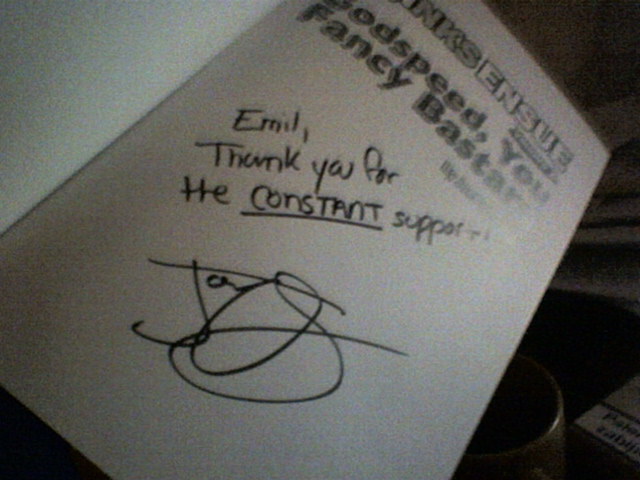 ANKS ENSUE
Godspeed, You
Fancy Bastar
Emil,
Thank you for
the CONSTANT suppor